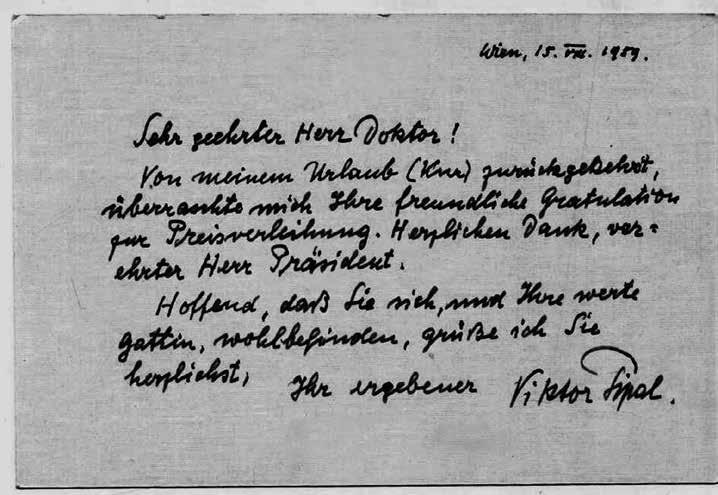 Wien, 15. VII. 1959.
Sehr geehrter Herr Doktor!
Von meinem Urlaub (Kur) zurückgekehrt,
überraschte mich Ihre freundliche Gratulation
zur Preisverleihung. Herzlichen Dank, ver=
ehrter Herr Präsident.
Hoffend, daß Sie sich, und Ihre werte
Gattin, wohlbefinden, grüße ich Sie
herzlichst,
Ihr ergebener Viktor Tipal.